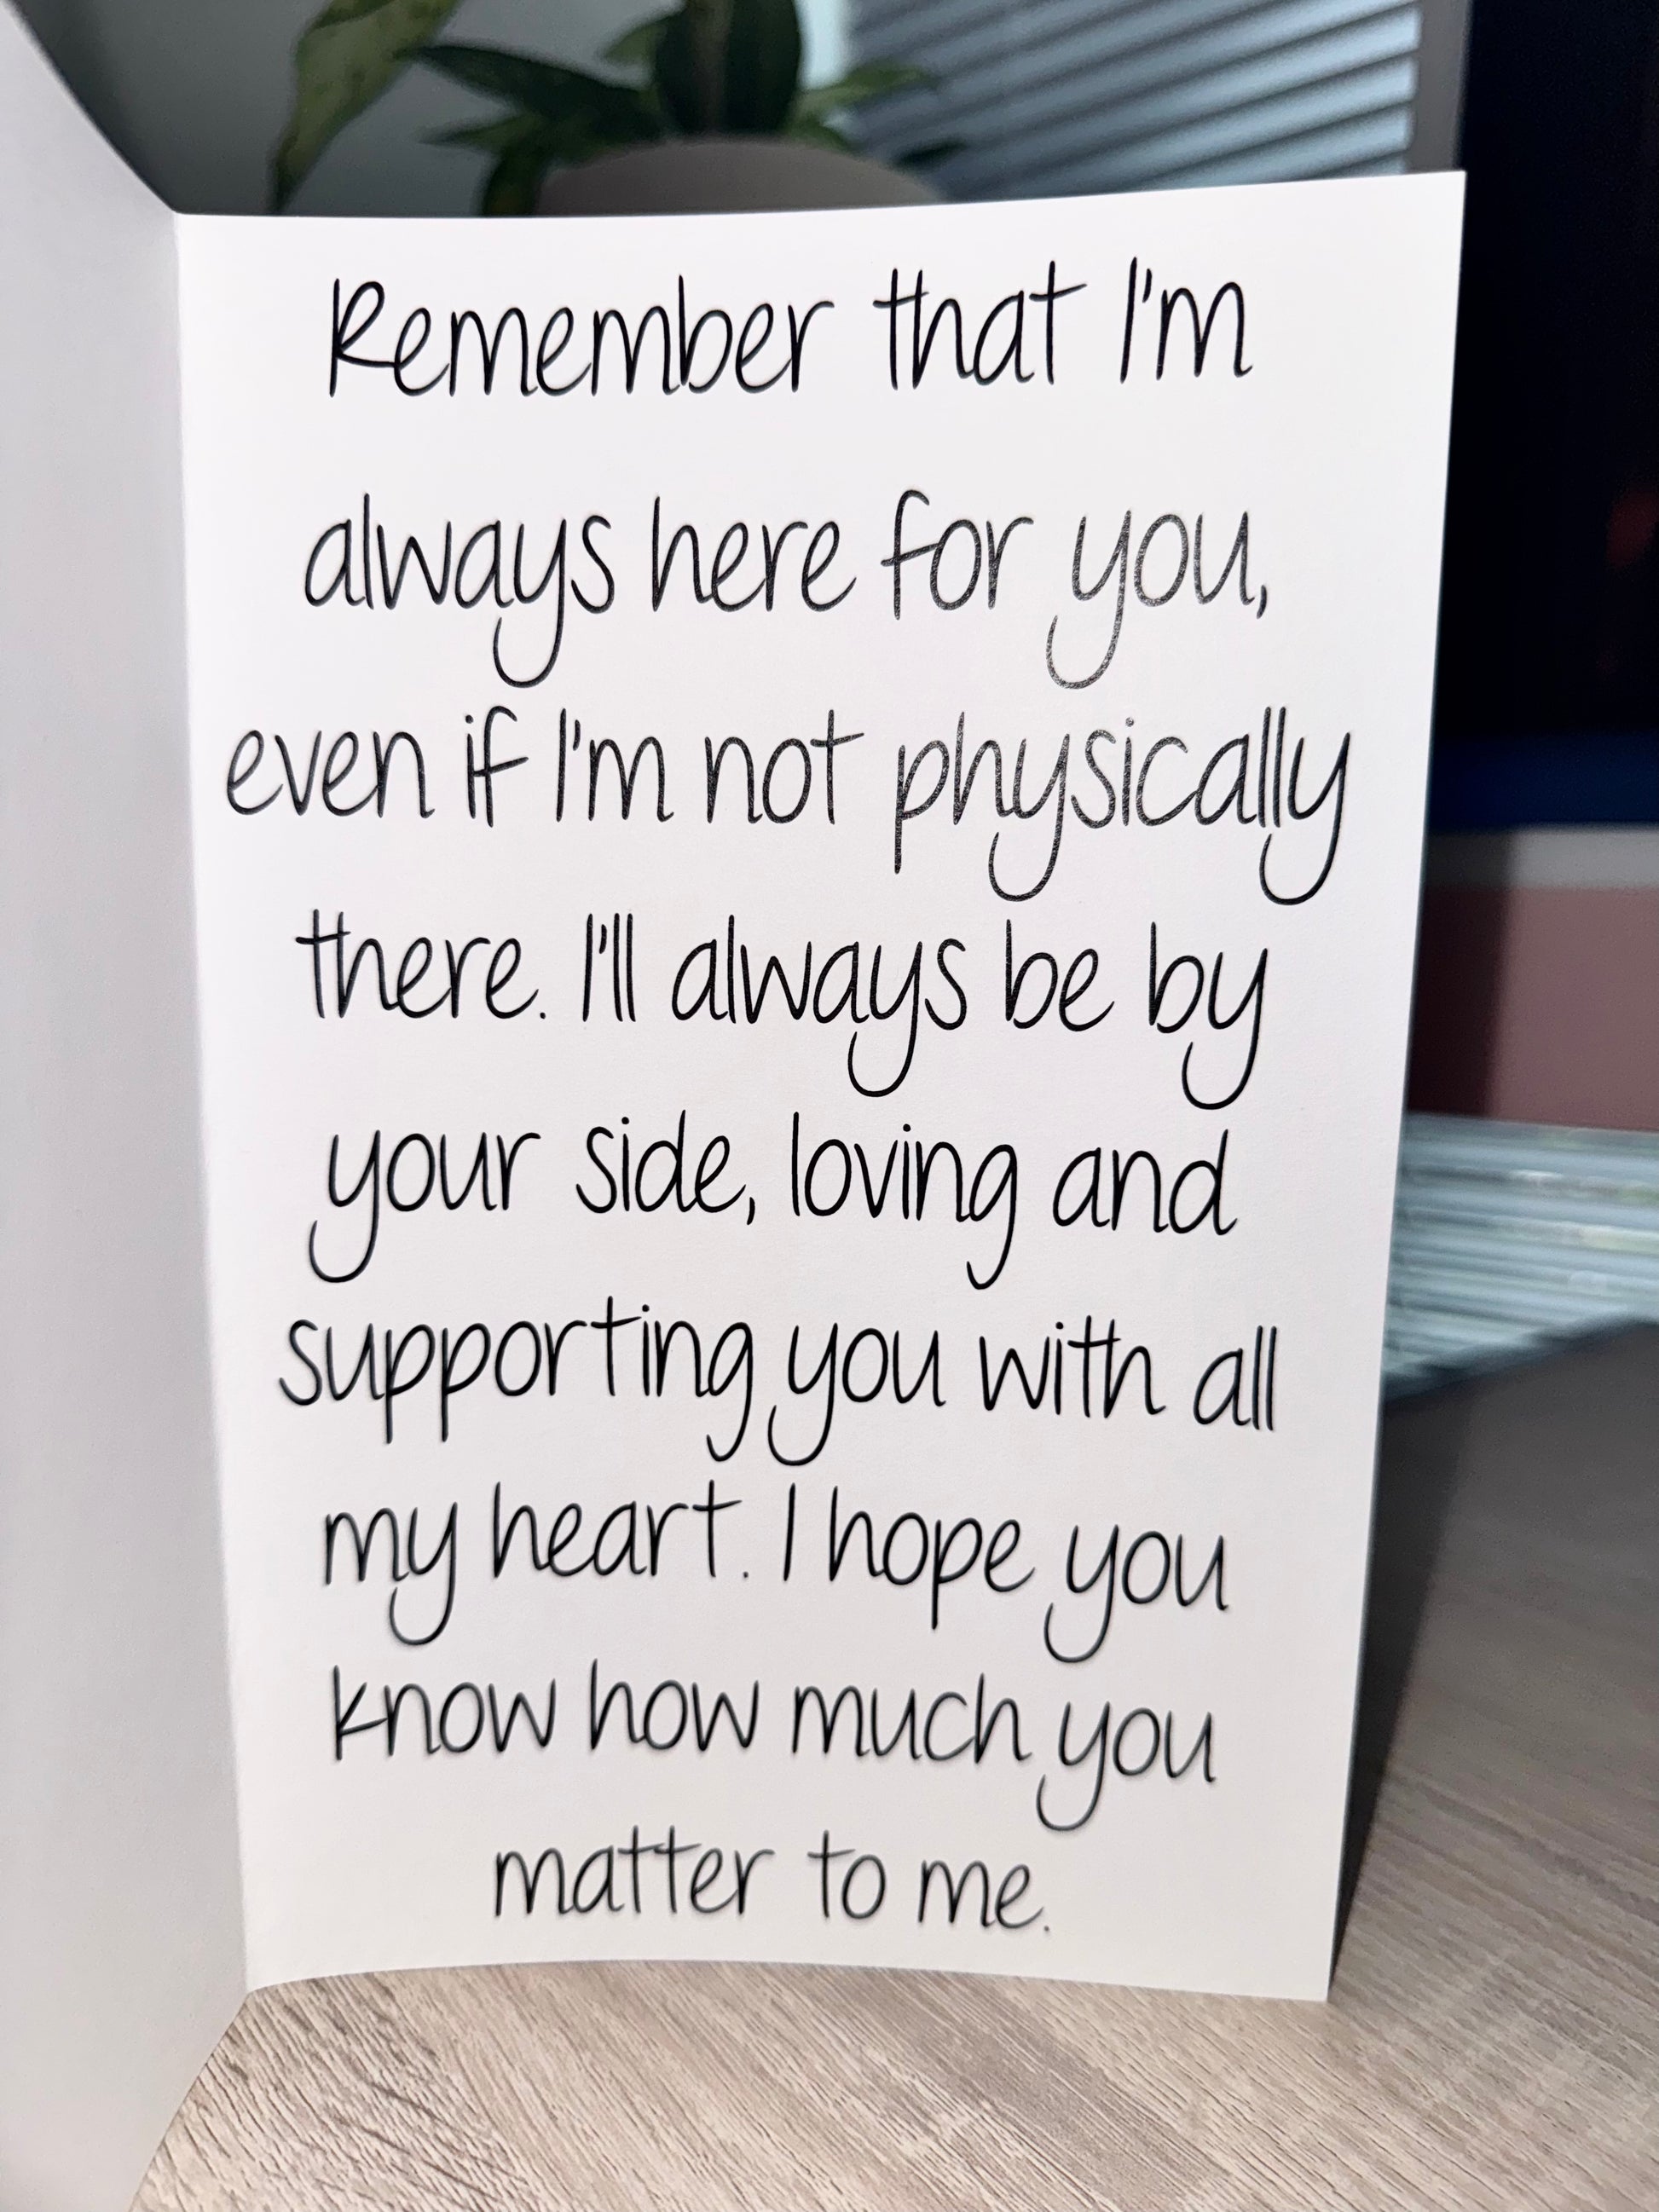 Remember that I'm
always here for you,
even if I'm not physically
there. I'll always be by
your side, loving and
supporting you with all
my heart. I hope you
know how much you
matter to me.